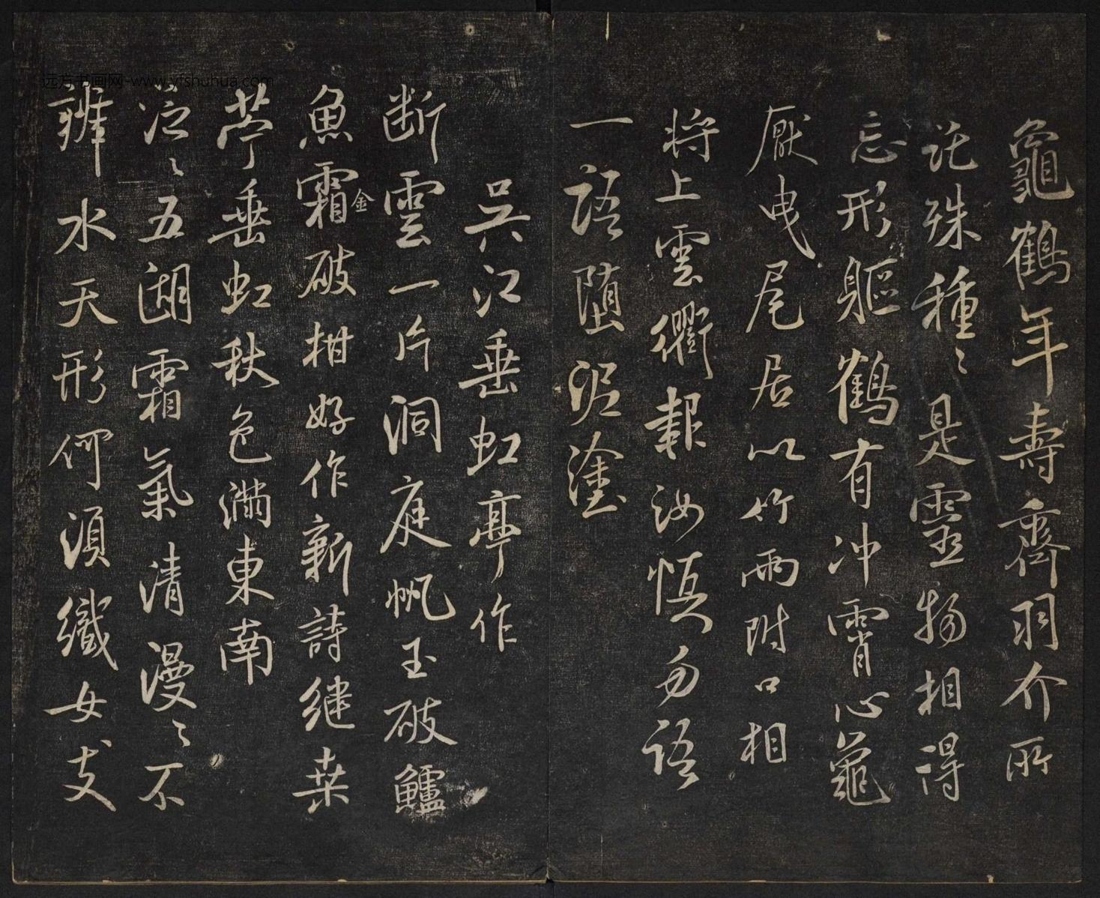 龜鶴年壽齊羽介所
託殊種〻是靈物相得
忘形軀鶴有冲霄心龜
厭曳尾居以竹兩附口相
將上雲衢報汝慎勿語
一語墮泥塗
吳江垂虹亭作
断雲一片洞庭帆玉破鱸
魚霜破柑好作新詩繼桑
金
苧垂虹秋色满東南
泛〻五湖霜氣清漫〻不
辨水天形何須織女支
远方书画网 www.yfshuhua.com